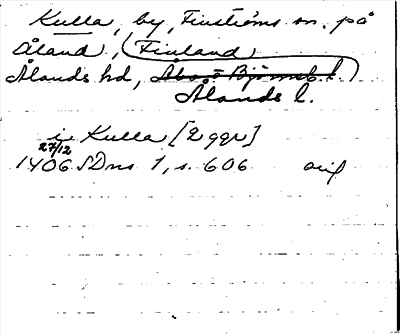 Kulla, by, Finströms sn. på
Åland, (Finland)
Ålands hd, Åbo o Björneb. l.
Ålands l.
i Kulla [2 ggr]
27/12
1406 SDns 1, s. 606 orig